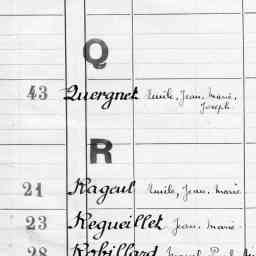 Q
43 Quergnet Emile, Jean, Marie,
Joseph
R
21 Ragaul Emile, Jean, Marie
23 Regueillet Jean, Marie
28 Robillard Marcel